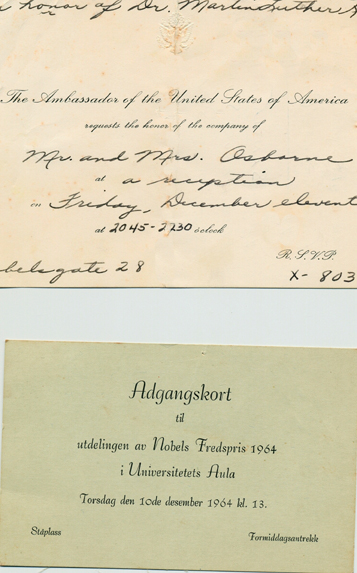 honor of Dr. Martin Luther
The Ambassador of the United States of America
requests the honor of the company of
Mr. and Mrs. Osborne
at a reception
on Friday, December eleven
at 2045-2230 o'clock
R.S.V.P.
belsgate 28 X- 803
Adgangskort
til
utdelingen av Nobels Fredspris 1964
i Universitetets Aula
Torsdag den 10de desember 1964 kl. 13.
Ståplass Formiddagsantrekk